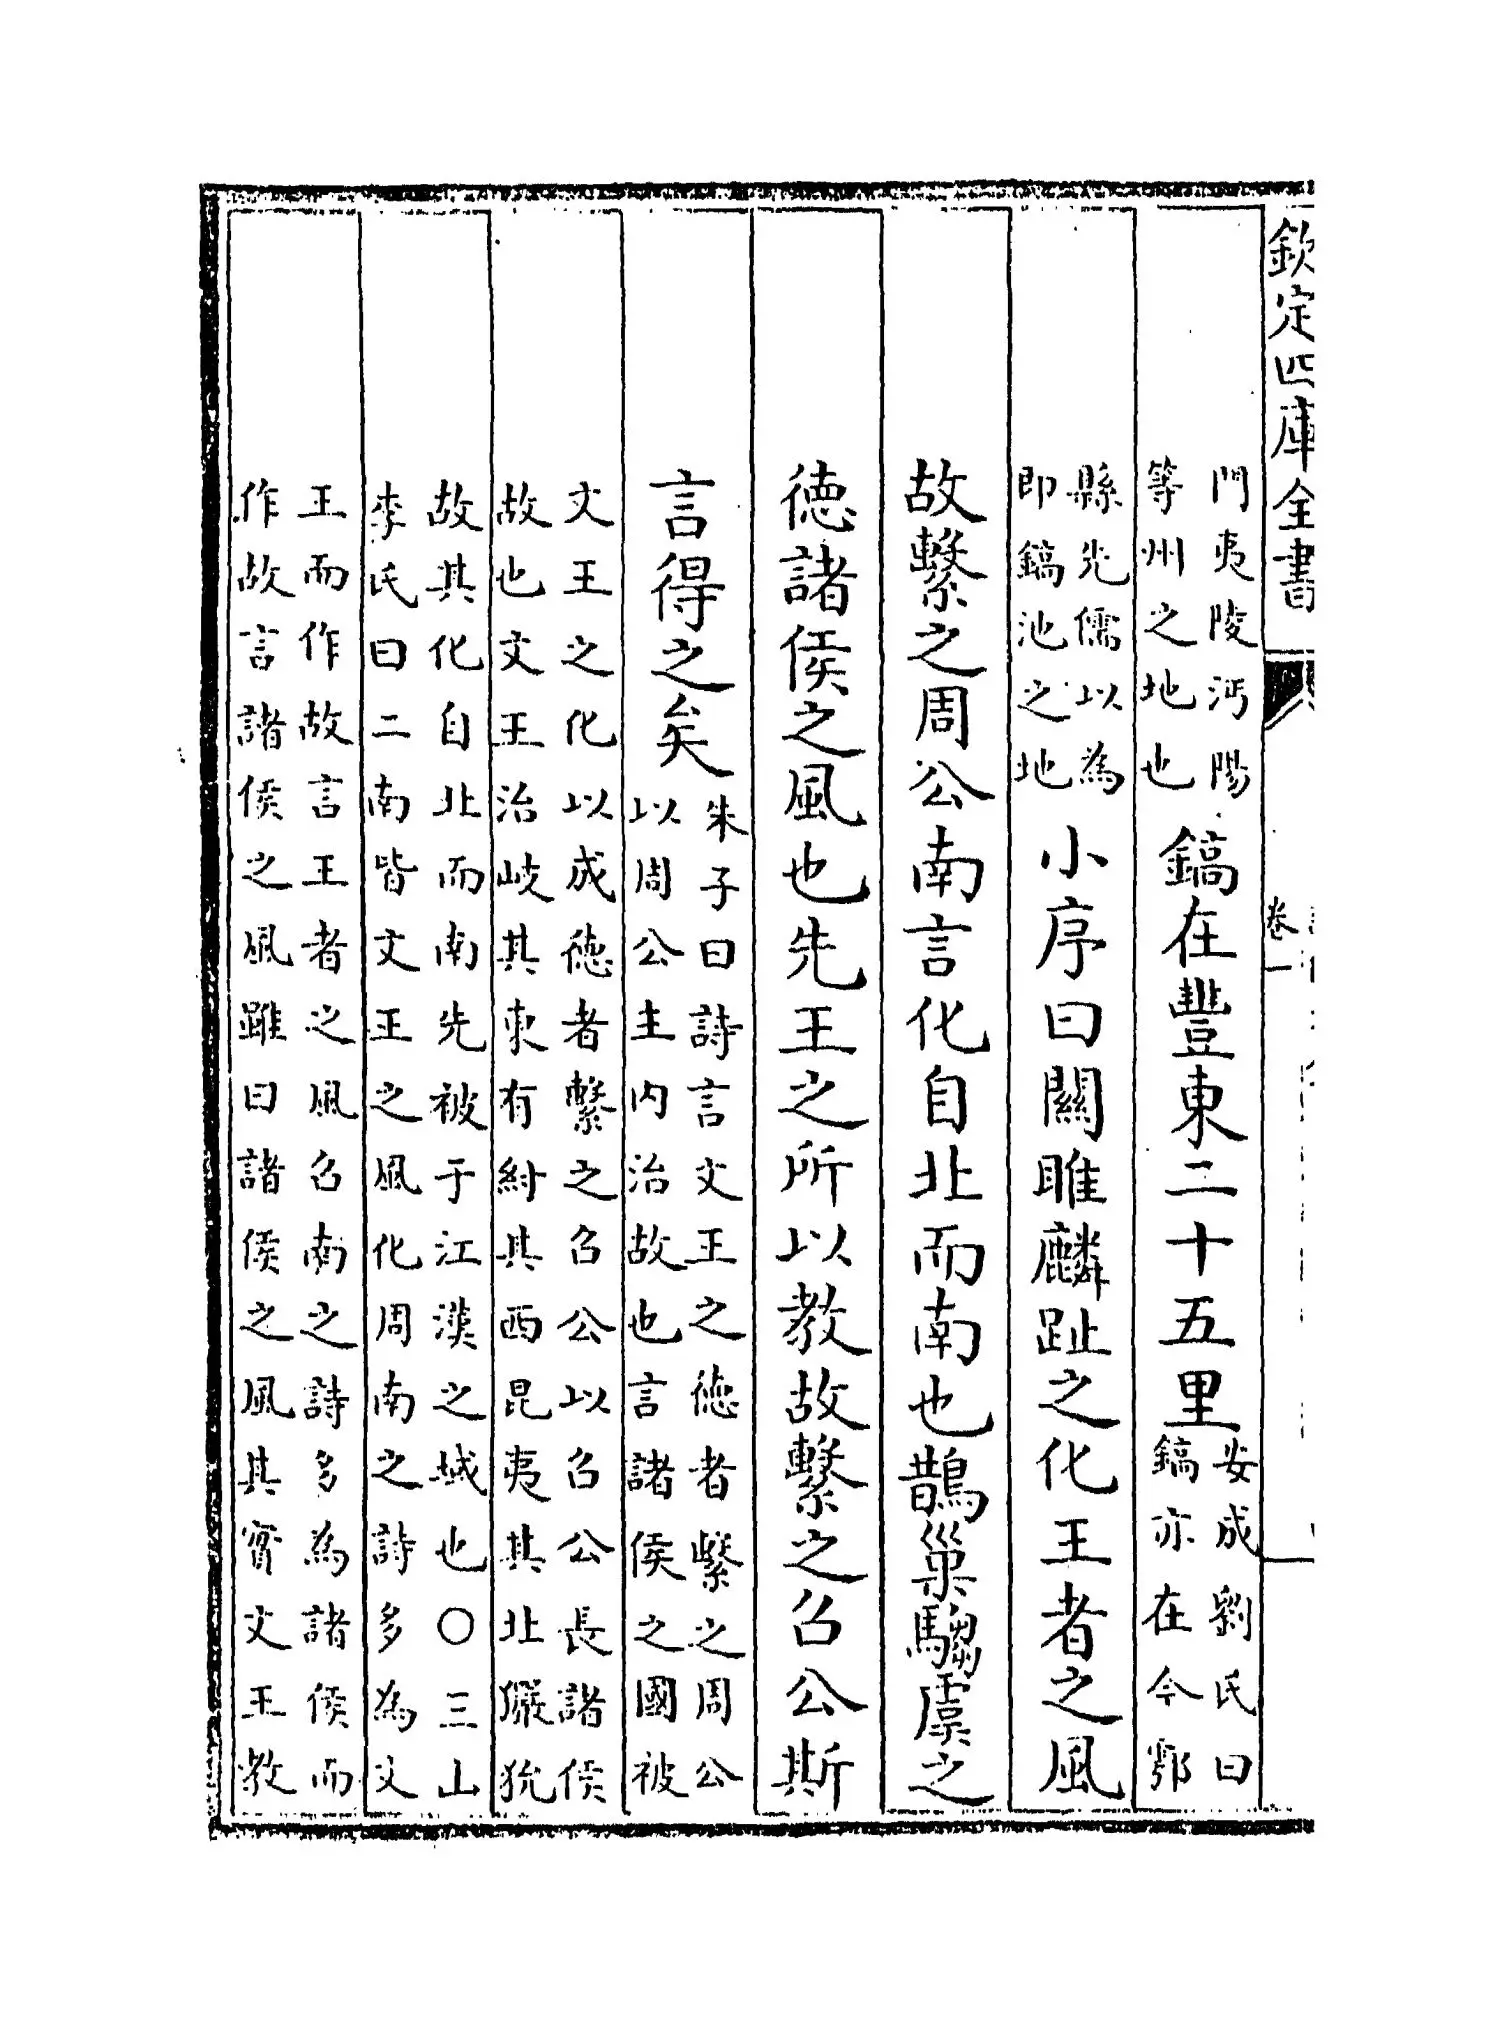 欽定四庫全書
卷一
門夷陵沔陽
等州之地也
鎬在豐東二十五里
安成劉氏曰
鎬亦在今鄠
縣先儒以為
即鎬池之地
小序曰關雎麟趾之化王者之風
故繫之周公南言化自北而南也鵲巢騶虞之
德諸侯之風也先王之所以教故繫之召公斯
言得之矣
朱子曰詩言文王之德者繫之周公
以周公主内治故也言諸侯之國被
文王之化以成德者繫之召公以召公長諸侯
故也文王治岐其東有紂其西昆夷其北玁狁
故其化自北而南先被于江漢之域也〇三山
李氏曰二南皆文王之風化周南之詩多為文
王而作故言王者之風召南之詩多為諸侯而
作故言諸侯之風雖曰諸侯之風其實文王教